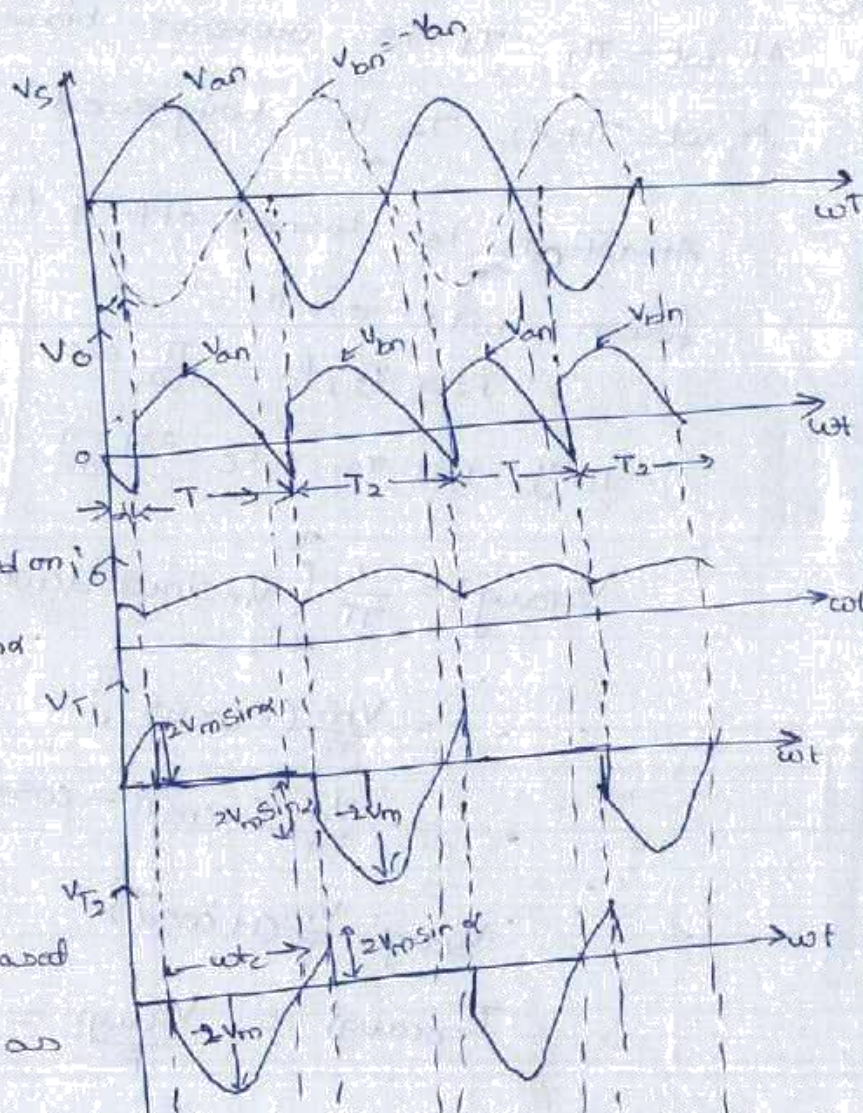 Van
Vbn=-Van
Vs
ωT
V0
Van
Vbn
Van
Vbn
ωt
0
T
T2
T
T2
d on
i0
ωt
nα
VT1
2Vm sinα
ωt
2Vm Sinα
-2Vm
VT2
ased
ωtc
2Vm sin α
ωt
as
-2Vm